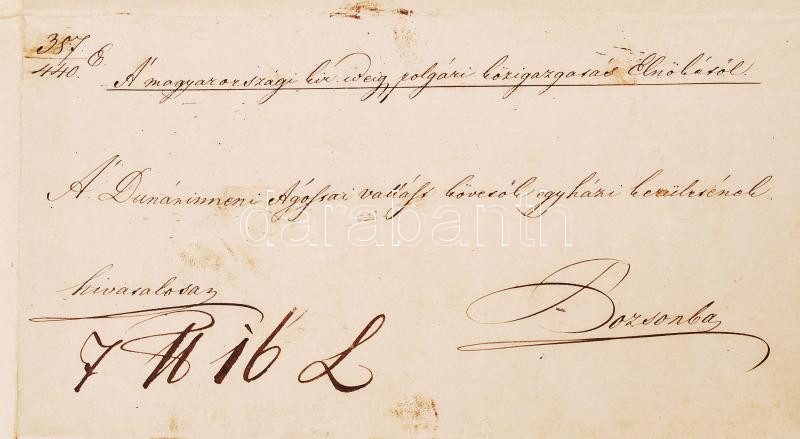 387. E.
440.
A magyarországi kir. ideig. polgári közigazgatás Elnökétől.
A' Dunáninneni Ágostai vallást követők egyházi kerületének
darabanth
hivatalosan
Pozsonba
7 16 L